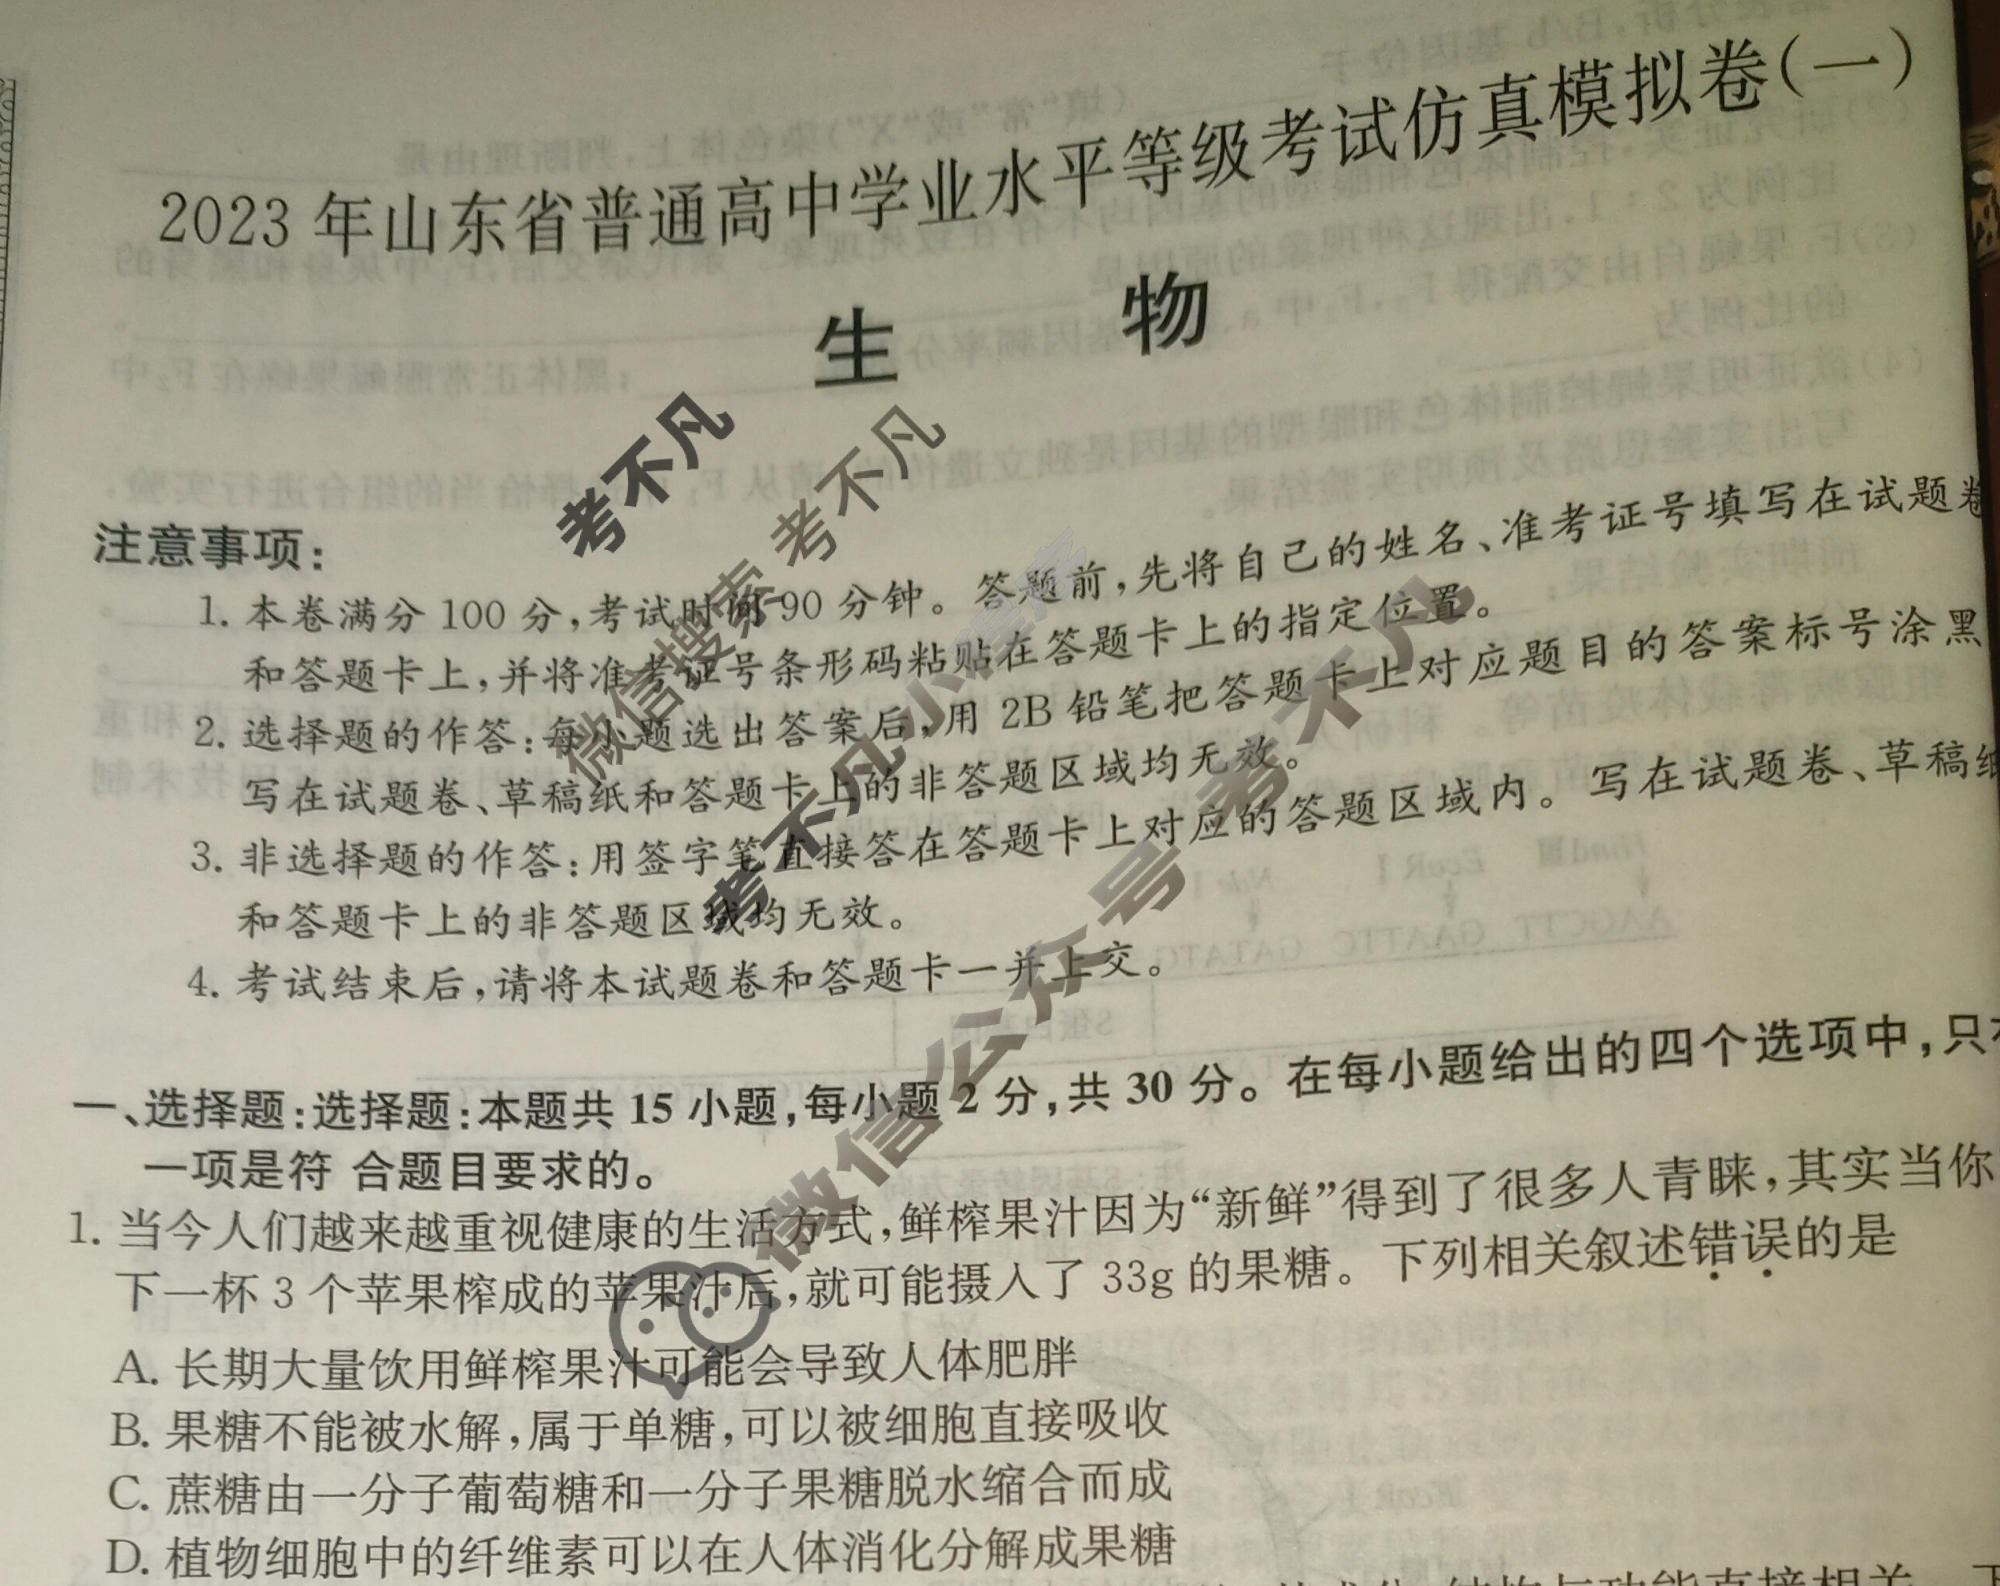 2023年山东省普通高中学业水平等级考试仿真模拟卷(一)
生 物
注意事项:
1. 本卷满分100分,考试时间90分钟。答题前,先将自己的姓名、准考证号填写在试题卷
和答题卡上,并将准考证号条形码粘贴在答题卡上的指定位置。
2. 选择题的作答:每小题选出答案后,用2B铅笔把答题卡上对应题目的答案标号涂黑
写在试题卷、草稿纸和答题卡上的非答题区域均无效。
3. 非选择题的作答:用签字笔直接答在答题卡上对应的答题区域内。写在试题卷、草稿纸
和答题卡上的非答题区域均无效。
4. 考试结束后,请将本试题卷和答题卡一并上交。
一、选择题:选择题:本题共15小题,每小题2分,共30分。在每小题给出的四个选项中,只有
一项是符 合题目要求的。
1. 当今人们越来越重视健康的生活方式,鲜榨果汁因为“新鲜”得到了很多人青睐,其实当你
下一杯3个苹果榨成的苹果汁后,就可能摄入了33g的果糖。下列相关叙述错误的是
A. 长期大量饮用鲜榨果汁可能会导致人体肥胖
B. 果糖不能被水解,属于单糖,可以被细胞直接吸收
C. 蔗糖由一分子葡萄糖和一分子果糖脱水缩合而成
D. 植物细胞中的纤维素可以在人体消化分解成果糖
考不凡
微信搜索 考不凡
考不凡小程序
微信公众号 考不凡